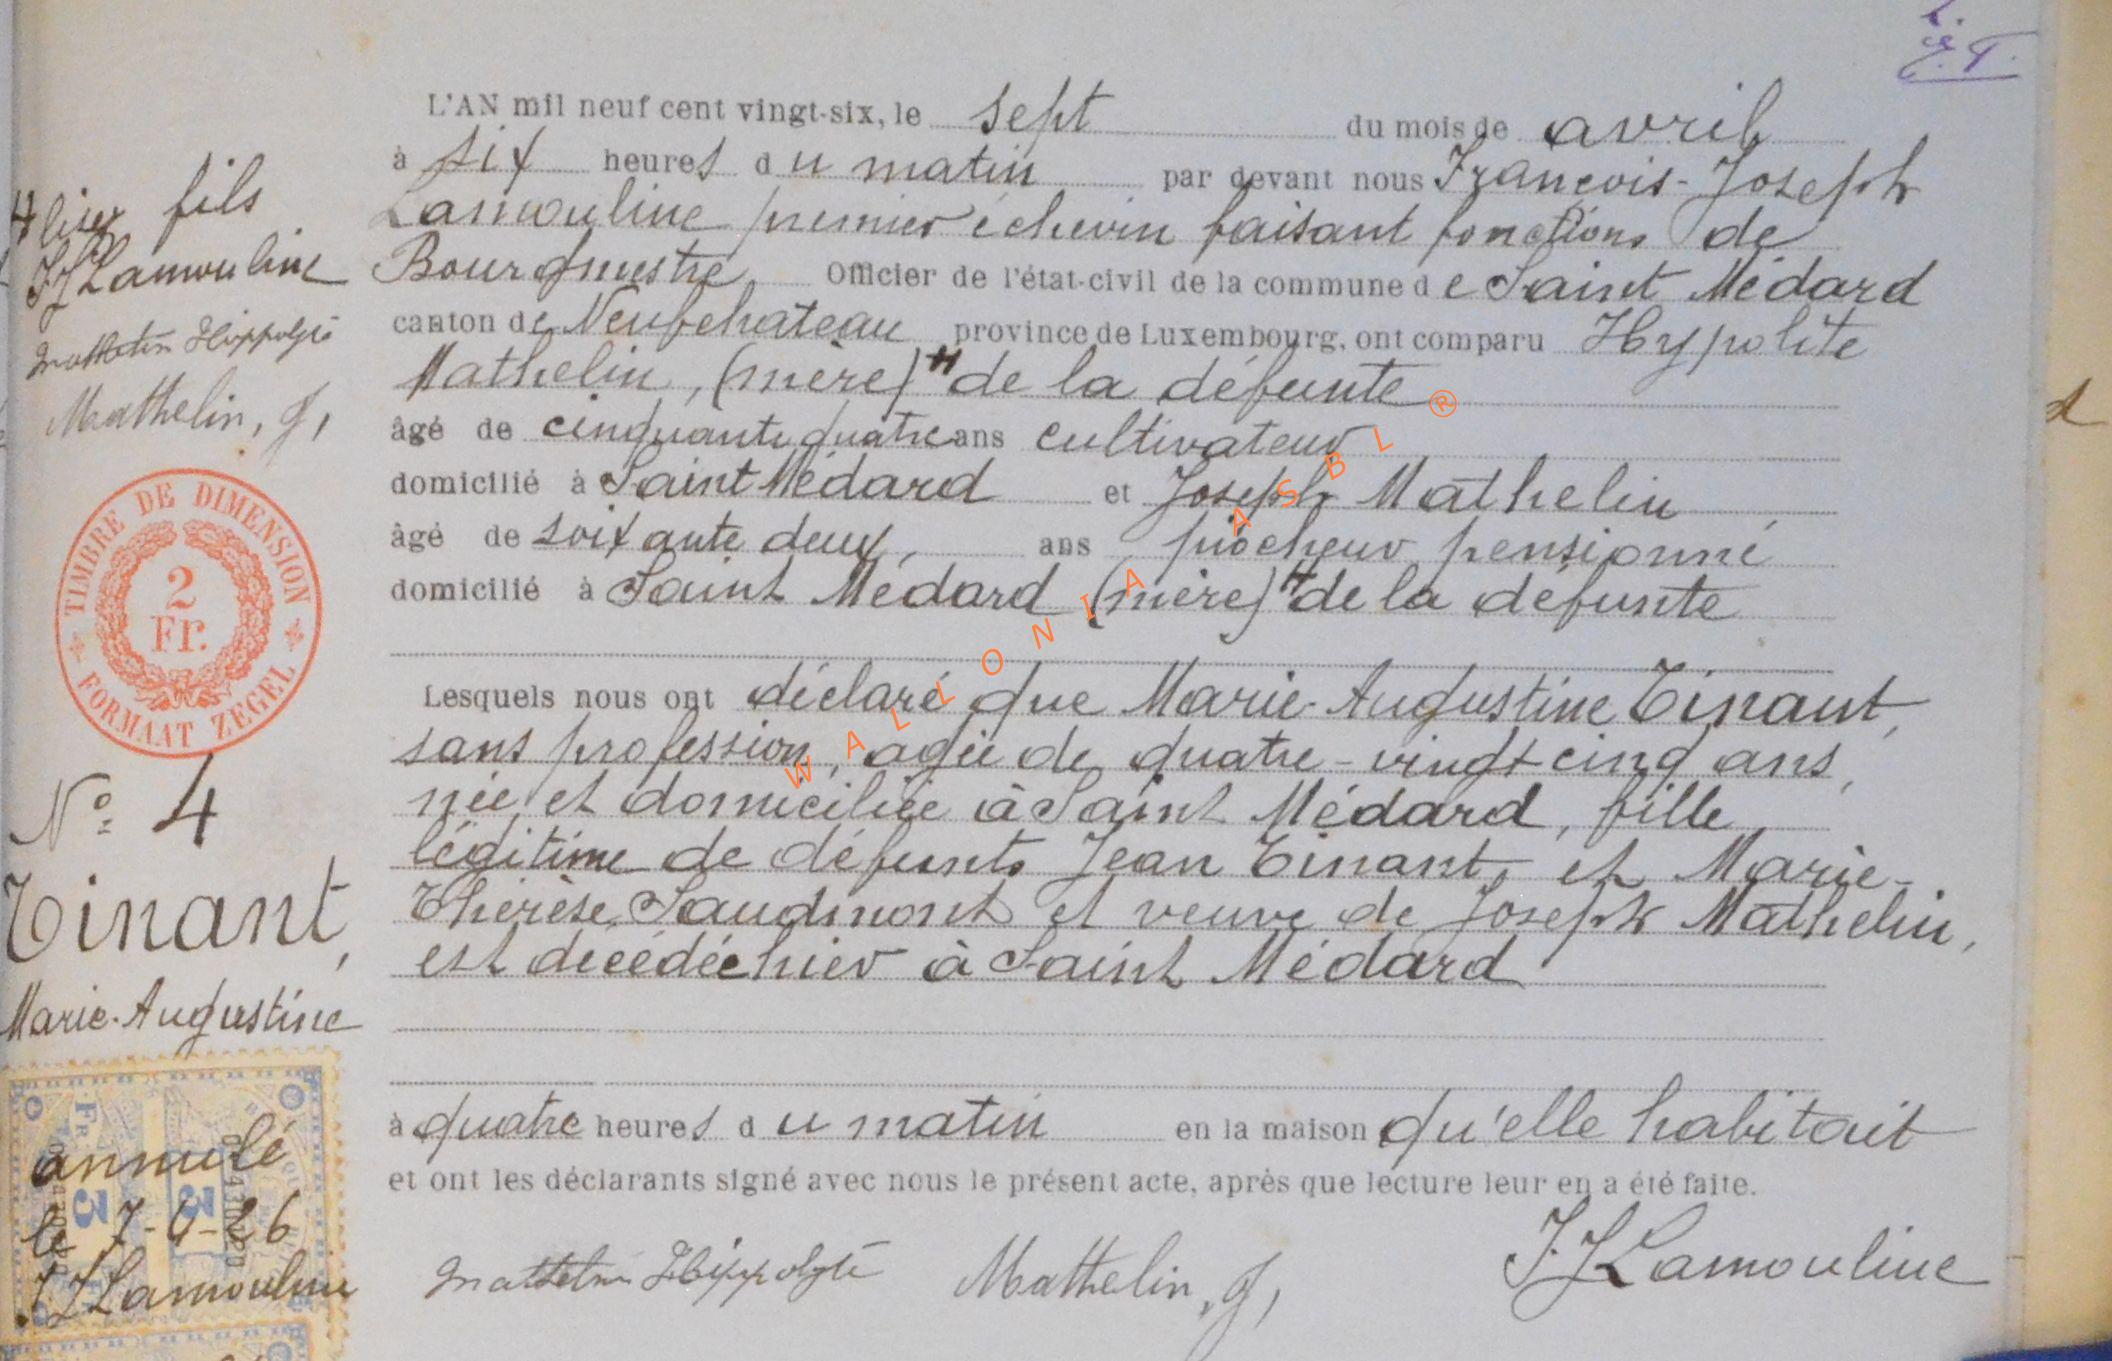 L'AN mil neuf cent vingt-six, le sept du mois de avril
à six heures du matin par devant nous François-Joseph
Lamouline premier échevin faisant fonctions de
Bourgmestre Officier de l'état-civil de la commune de Saint Médard
canton de Neufchateau province de Luxembourg, ont comparu Hypolite
Mathelin, (mère) # de la défunte
âgé de cinquante quatre ans cultivateur
domicilié à Saint Médard et Joseph Mathelin,
âgé de soixante deux, ans piocheur pensionné
domicilié à Saint Médard (mère) # de la défunte
Lesquels nous ont déclaré que Marie-Augustine Tinant,
sans profession, agée de quatre-vingt cinq ans,
née et domiciliée à Saint Médard, fille
légitime de défunts Jean Tinant et Marie-
Thérèse Saudmont et veuve de Joseph Mathelin,
est décédée hier à Saint Médard
à quatre heures du matin en la maison qu'elle habitait
et ont les déclarants signé avec nous le présent acte, après que lecture leur en a été faite.
Mathelin Hippolyte Mathelin, J, F.J Lamouline
# lisez fils
FJ Lamouline
Mathelin Hippolyte
Mathelin, J,
TIMBRE DE DIMENSION
2
Fr.
FORMAAT ZEGEL
No 4
Tinant,
Marie-Augustine
annulé
le 7-4-26
FJ Lamouline
WALLONIA ASBL ®